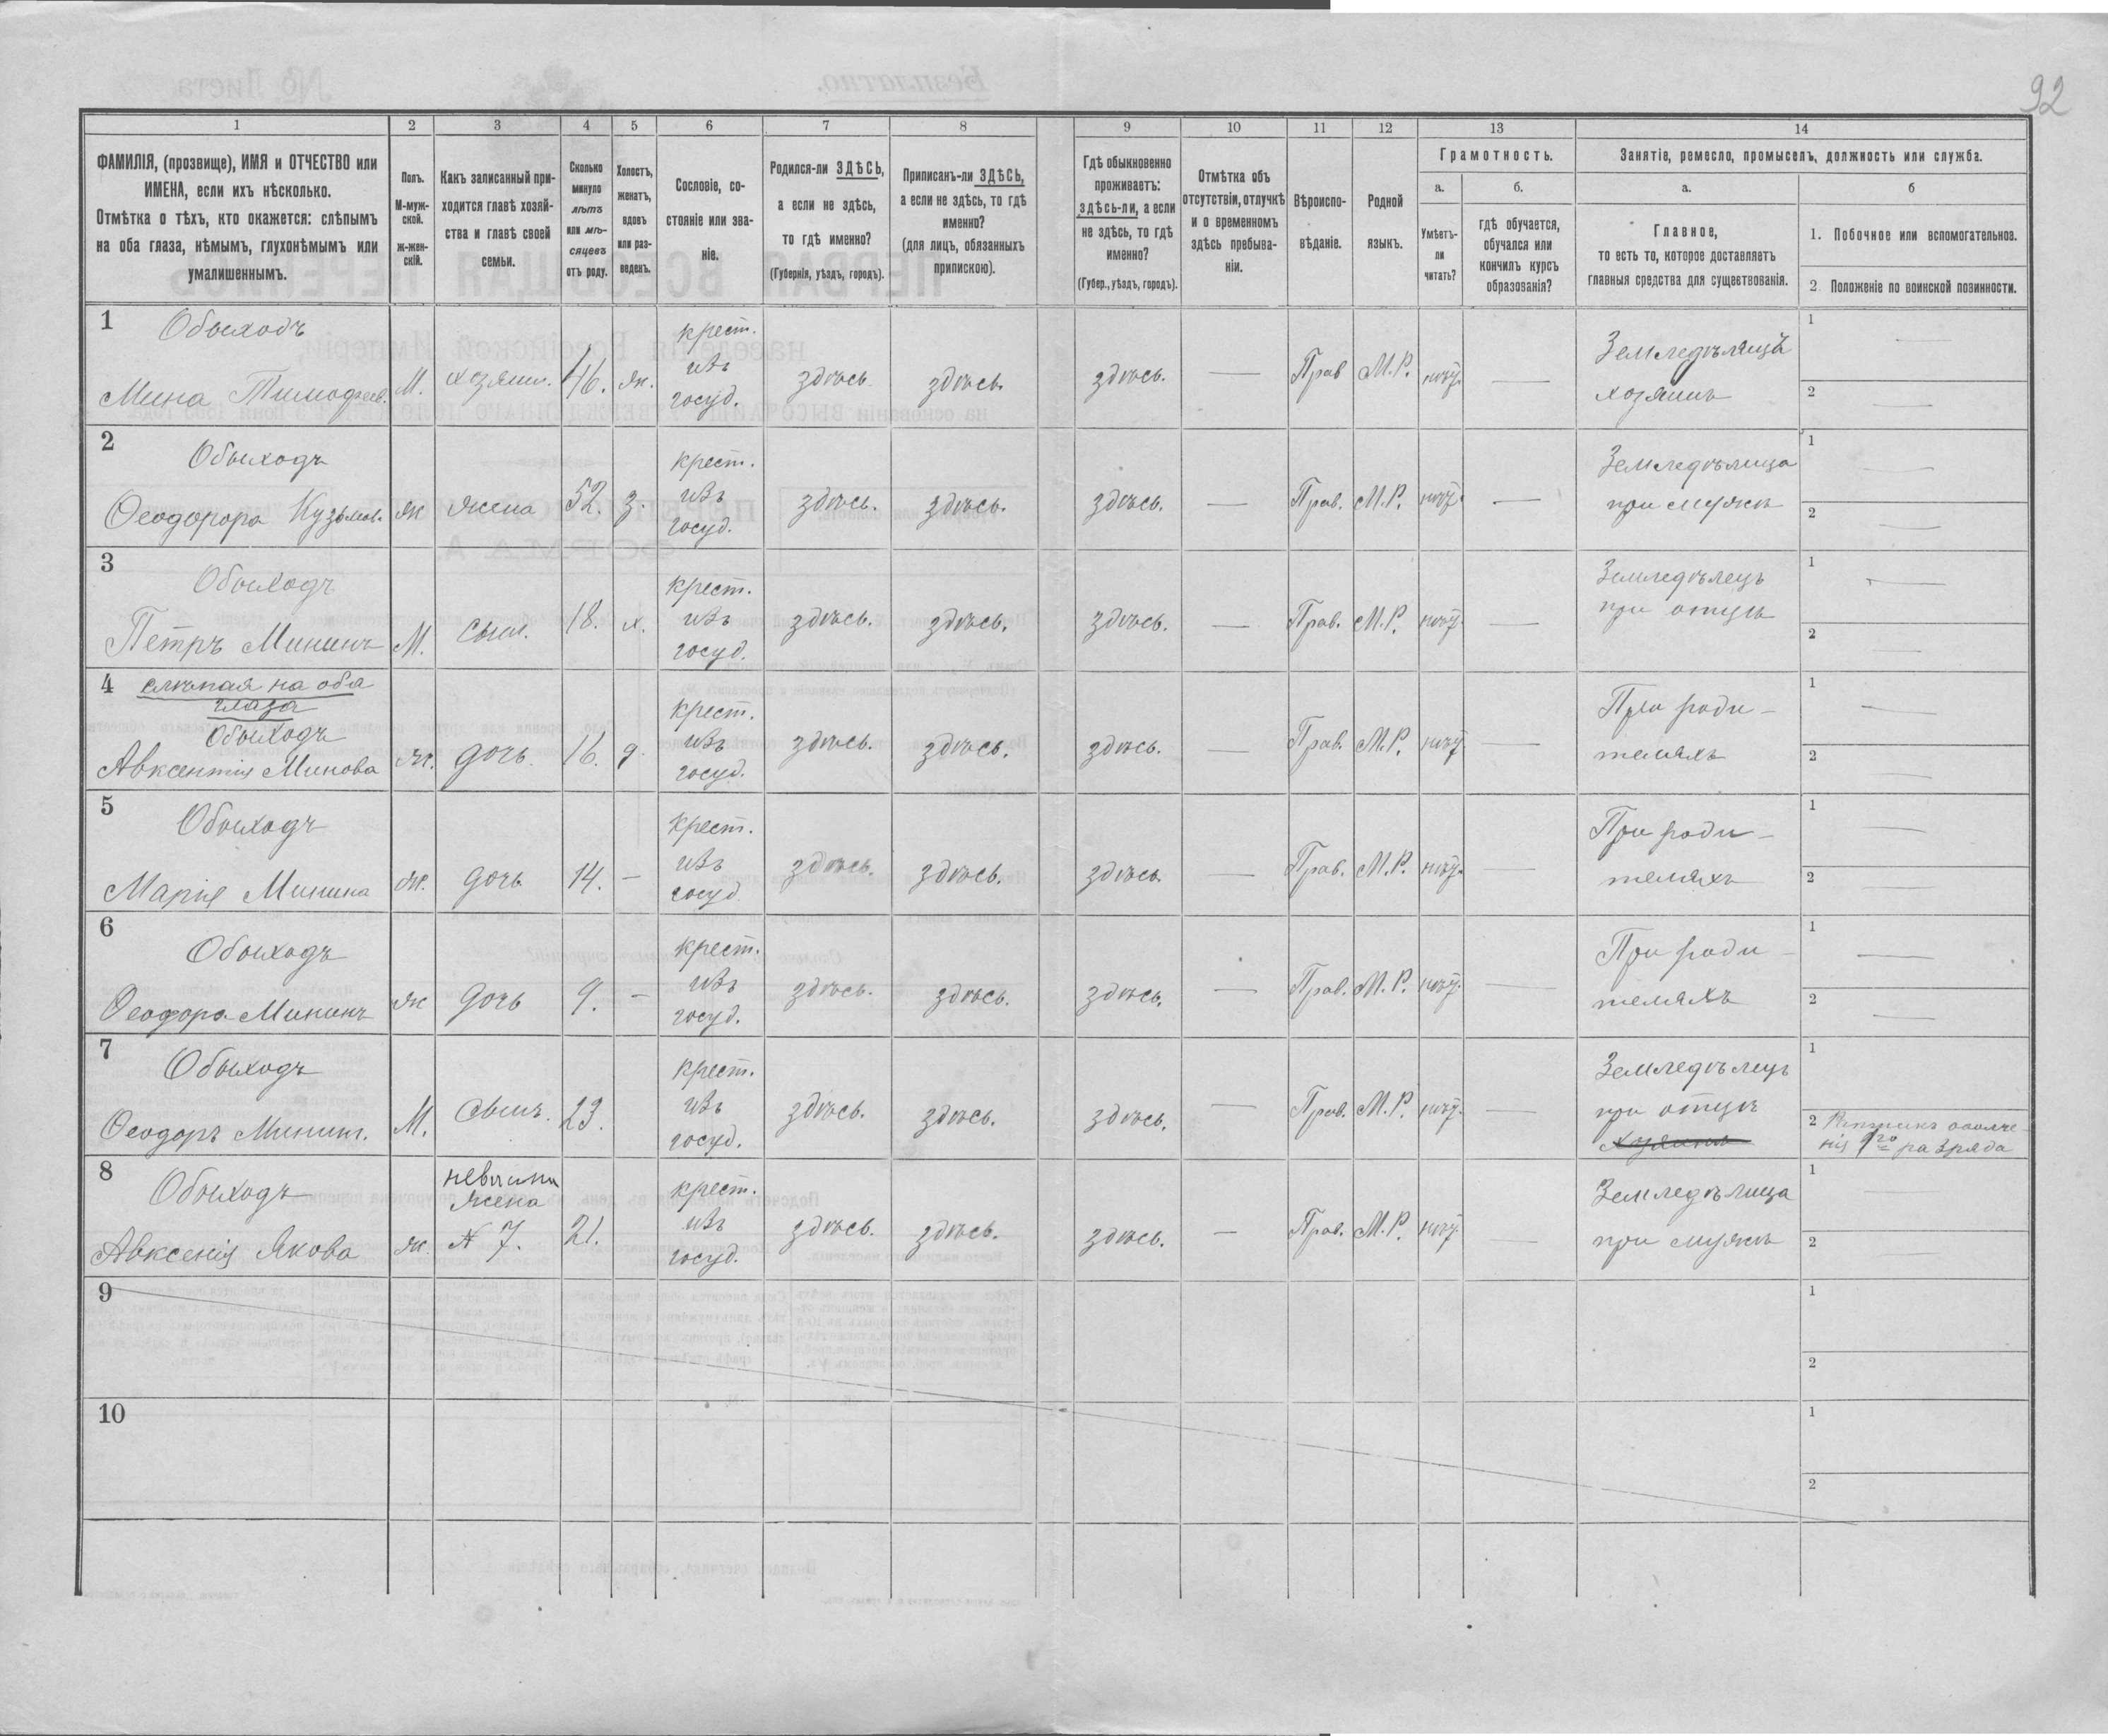 92
1 2 3 4 5 6 7 8 9 10 11 12 13 14
ФАМИЛІЯ, (прозвище), ИМЯ и ОТЧЕСТВО или
ИМЕНА, если ихъ нѣсколько.
Отмѣтка о тѣхъ, кто окажется: слѣпымъ
на оба глаза, нѣмымъ, глухонѣмымъ или
умалишеннымъ.
Полъ.
М-муж-
ской.
ж-жен-
скій.
Какъ записанный при-
ходится главѣ хозяй-
ства и главѣ своей
семьи.
Сколько
минуло
лѣтъ
или мѣ-
сяцевъ
отъ роду.
Холостъ,
женатъ,
вдовъ
или раз-
веденъ.
Сословіе, со-
стояніе или зва-
ніе.
Родился-ли ЗДѢСЬ,
а если не здѣсь,
то гдѣ именно?
(Губернія, уѣздъ, городъ).
Приписанъ-ли ЗДѢСЬ,
а если не здѣсь, то гдѣ
именно?
(для лицъ, обязанныхъ
припискою).
Гдѣ обыкновенно
проживаетъ:
здѣсь-ли, а если
не здѣсь, то гдѣ
именно?
(Губер., уѣздъ, городъ).
Отмѣтка объ
отсутствіи, отлучкѣ
и о временномъ
здѣсь пребыва-
ніи.
Вѣроиспо-
вѣданіе.
Родной
языкъ.
Грамотность.
а.
Умѣетъ-
ли
читать?
б.
гдѣ обучается,
обучался или
кончилъ курсъ
образованія?
Занятіе, ремесло, промыселъ, должность или служба.
а.
Главное,
то есть то, которое доставляетъ
главныя средства для существованія.
б
1. Побочное или вспомогательное.
2 Положеніе по воинской повинности.
1 Обыходъ
Мина Тимофеев. М. хозяин. 46. ж. крест. изъ госуд. здѣсь здѣсь. здѣсь. — Прав М.Р. — Земледѣлецъ хозяинъ
1 —
2 —
2 Обыходъ
Ѳеодорора Кузьмов. ж жена 52. з. крест. изъ госуд. здѣсь. здѣсь. здѣсь. — Прав. М.Р. — Земледѣлица при мужѣ
1 —
2 —
3 Обыходъ
Петръ Мининъ М. сын. 18. х. крест. изъ госуд. здѣсь. здѣсь. здѣсь. — Прав. М.Р. — Земледѣлецъ при отцѣ
1 —
2 —
4 слѣпая на оба
глаза
Обыходъ
Авксентія Минова ж. дочь. 16. д. крест. изъ госуд. здѣсь. здѣсь. здѣсь. — Прав. М.Р. — При роди-
теляхъ
1 —
2 —
5 Обыходъ
Марія Минина ж. дочь 14. — крест. изъ госуд здѣсь. здѣсь. здѣсь. — Прав. М.Р. — При роди-
теляхъ
1 —
2 —
6 Обыходъ
Ѳеодора Мининъ ж дочь 9. — крест. изъ госуд. здѣсь. здѣсь. здѣсь. — Прав. М.Р. — При роди-
теляхъ
1 —
2 —
7 Обыходъ
Ѳеодоръ Минин. М. сынъ. 23. крест. изъ госуд. здѣсь. здѣсь. здѣсь. — Прав. М.Р. — Земледѣлецъ
при отцѣ
хозяинъ
1
2 ополче-
нія 1го разряда
8 Обыходъ
Авксенія Якова ж. жена
№ 7. 21. крест. изъ госуд. здѣсь. здѣсь. здѣсь. — Прав. М.Р. — Земледѣлица
при мужѣ
1 —
2 —
9
1
2
10
1
2